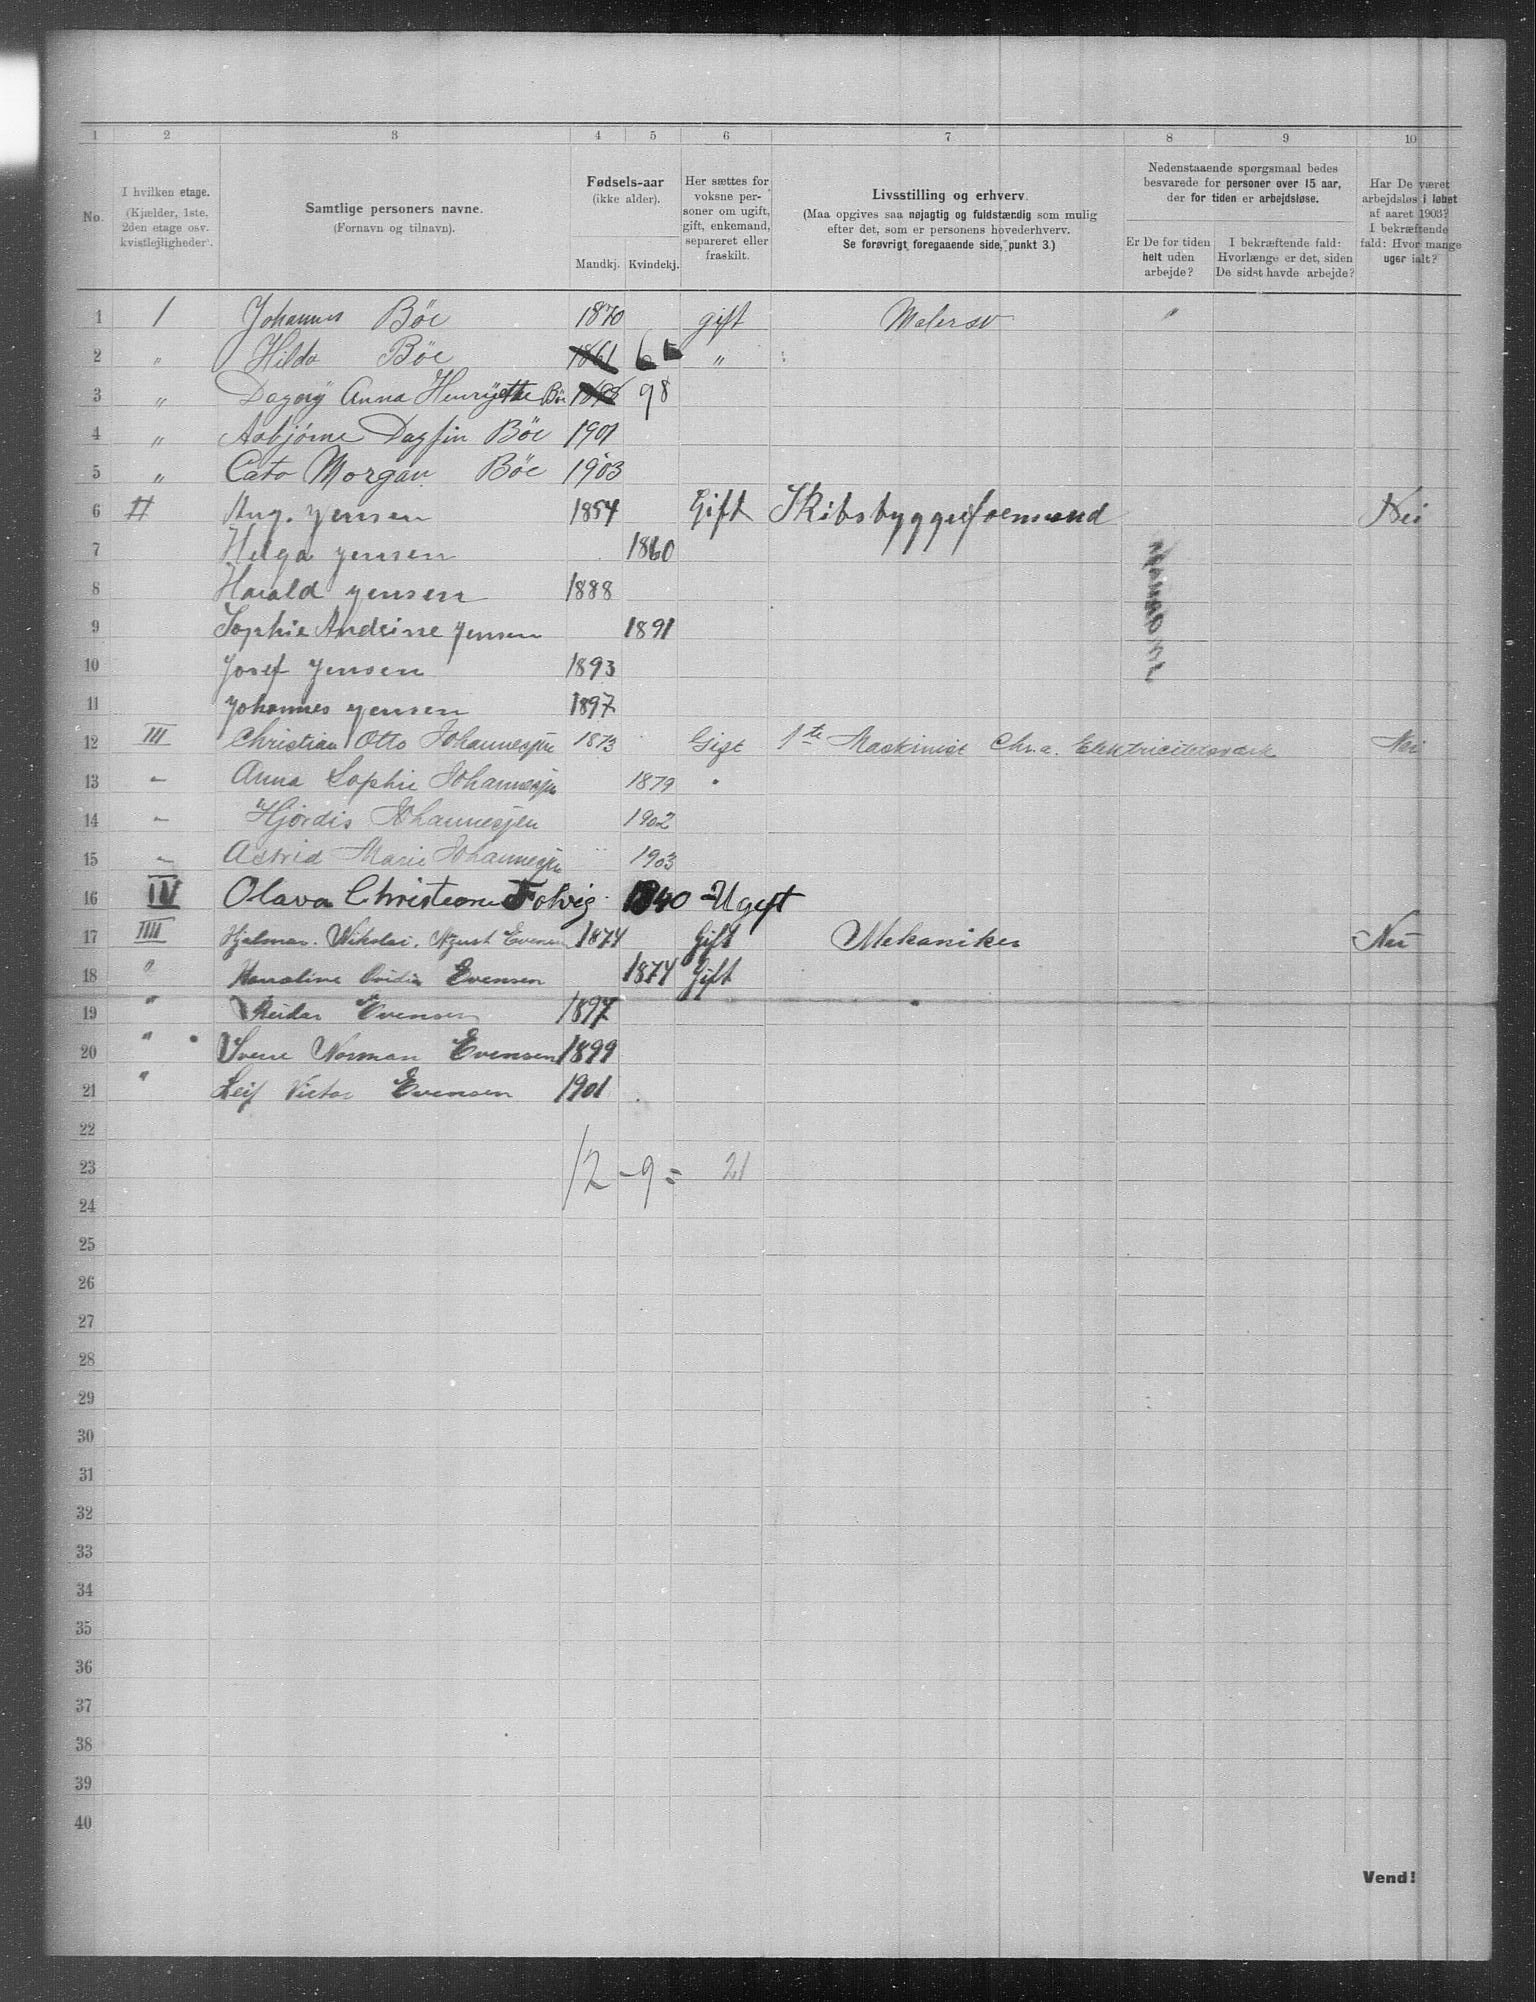 1 2 3 4 5 6 7 8 9 10
No.
I hvilken etage.
(Kjælder, 1ste,
2den etage osv.
kvistlejligheder).
Samtlige personers navne.
(Fornavn og tilnavn).
Fødsels-aar
(ikke alder).
Mandkj. Kvindekj.
Her sættes for
voksne per-
soner om ugift,
gift, enkemand,
separeret eller
fraskilt.
Livsstilling og erhverv.
(Maa opgives saa nøjagtig og fuldstændig som mulig
efter det, som er personens hovederhverv.
Se forøvrigt foregaaende side, punkt 3.)
Nedenstaaende spørgsmaal bedes
besvarede for personer over 15 aar,
der for tiden er arbejdsløse.
Er De for tiden
helt uden
arbejde?
I bekræftende fald:
Hvorlænge er det, siden
De sidst havde arbejde?
Har De været
arbejdsløs i løbet
af aaret 1903?
I bekræftende
fald: Hvor mange
uger ialt?
1 1 Johannes Böe 1870 gift Malersv "
2 " Hilda Böe 1861 "
3 " Dagny Anna Henryette Böe 98
4 " Asbjørne Dagfin Böe 1901
5 " Cato Morgan Böe 1903
6 II Aug. Jensen 1854 Gift Skibsbyggeriformand Nei
7 Helga Jensen 1860
8 Harald Jensen 1888
9 Sophie Andrine Jensen 1891
10 Josef Jensen 1893
11 Johannes Jensen 1897
12 III Christian Otto Johannesjen 1873 Gift 1ste Maskinist Chr.a. Elektricitetsværk Nei
13 " Anna Sophie Johannesjen 1879 "
14 " Hjördis Johannesjen 1902
15 " Astrid Marie Johannesjen 1903
16 IV Olava Christiane 1840 Ugift
17 IIII Hjalmar. Nikolai. Agust Evensen 1874 Gift Mekaniker Nei
18 " Evensen 1874 Gift
19 " Reidar Evensen 1897
20 " Sverre Norman Evensen 1899
21 " Leif Victor Evensen 1901
22
23 12 - 9 = 21
24
25
26
27
28
29
30
31
32
33
34
35
36
37
38
39
40
Vend!